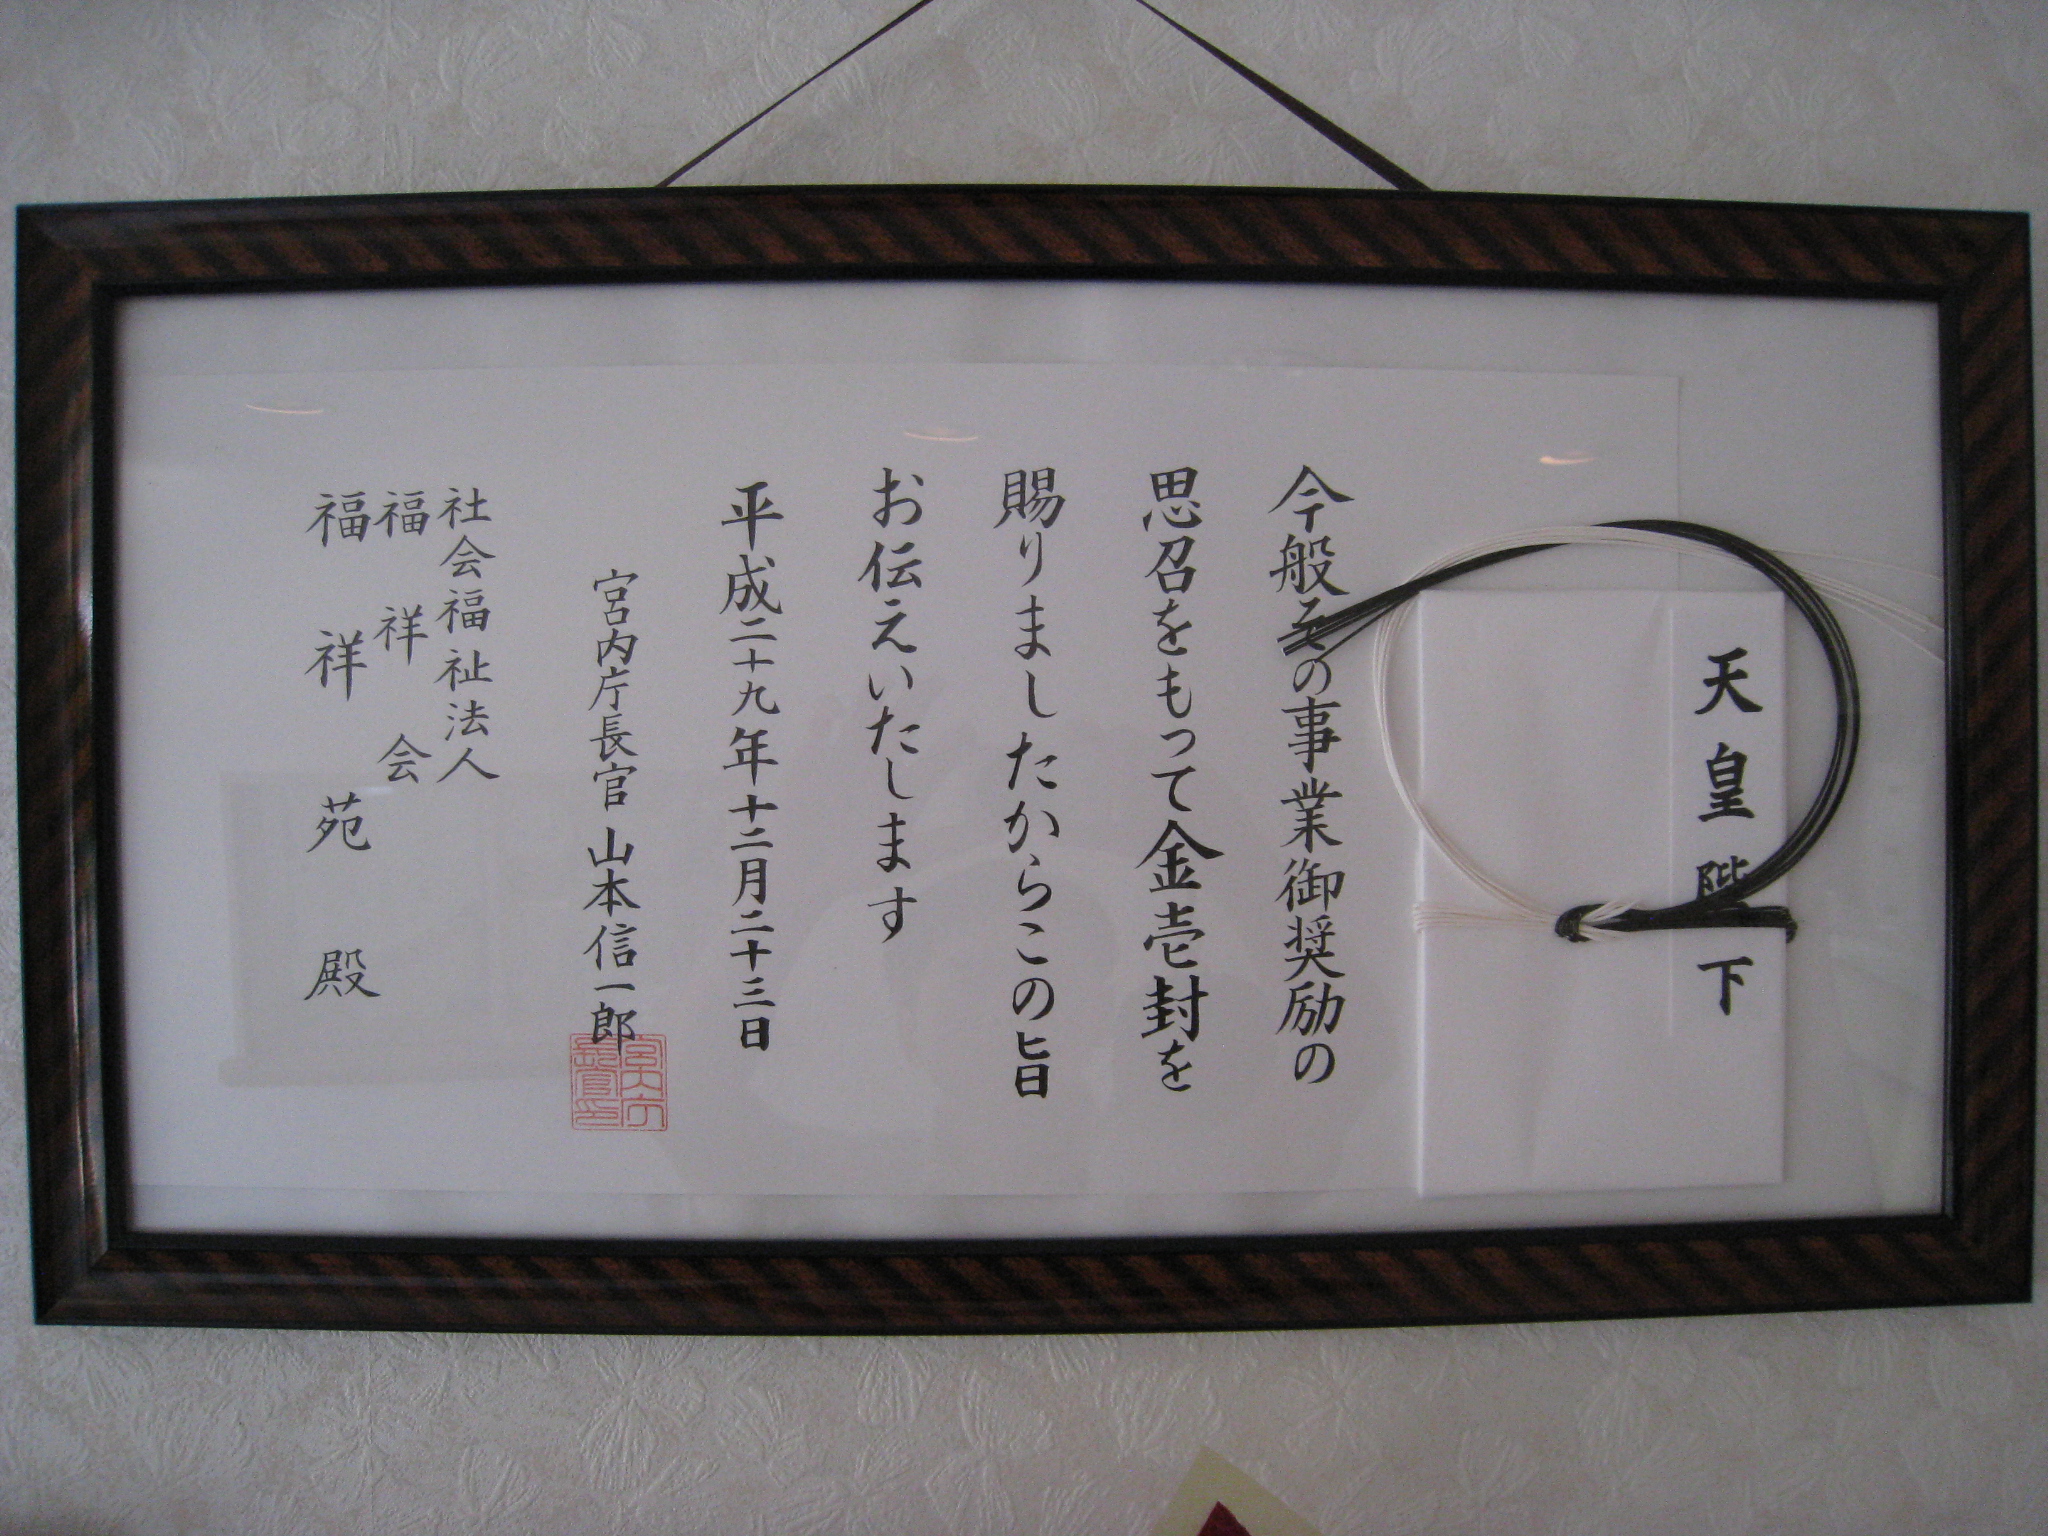 天皇陛下
今般その事業御奨励の
思召をもって金壱封を
賜りましたからこの旨
お伝えいたします
平成二十九年十二月二十三日
宮内庁長官 山本信一郎
宮内庁長官印
社会福祉法人
福祥会
福祥苑殿